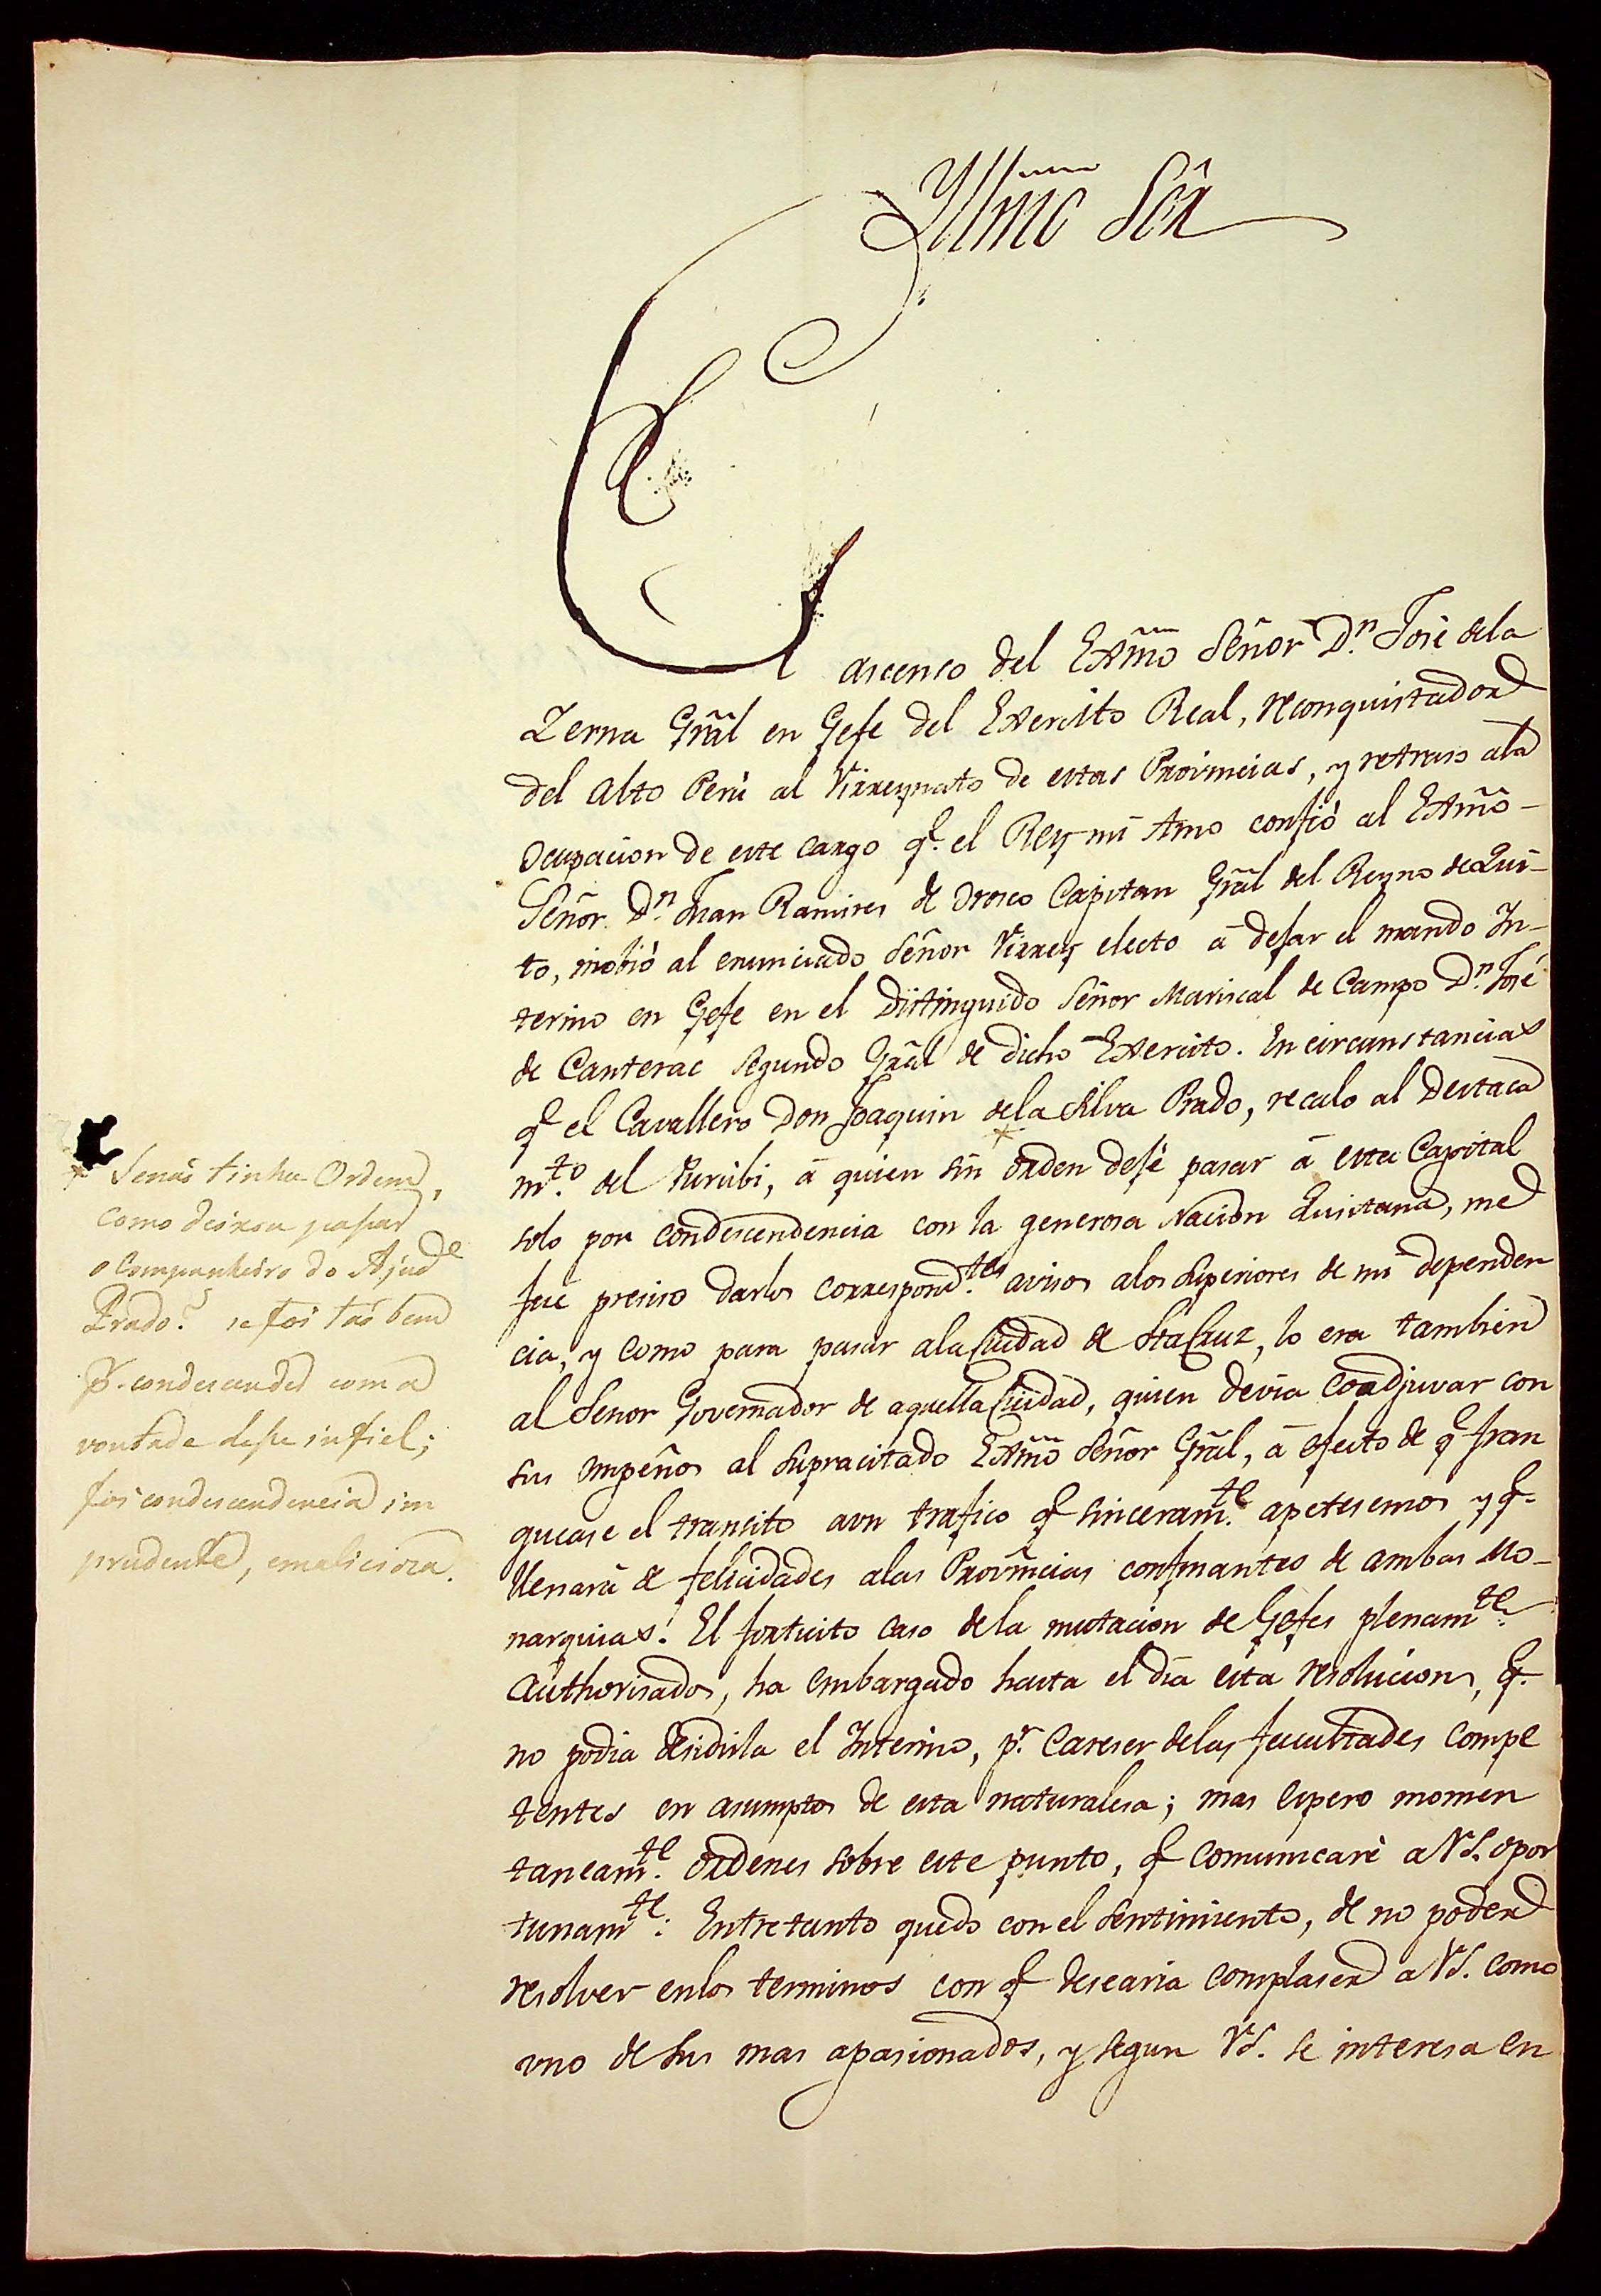 Yllmõ Señr
El ascenso del Exm̃o Señor Dn. José dela
Zerna Grãl en Gefe del Exercito Real, reconquistador
del alto Perú al Virreynato de estas Provincias, y retraso ala
Ocupacion de este cargo q.e el Rey mi Amo confió al Exmõ
Señor Dn. Juan Ramires de Orosco Capitan Grãl del Reyno de Qui-
to, mobió al enunciado Señor Virrey electo á dejar el mando In-
terino en Gefe en el Distinguido Señor Mariscal de Campo Dn. José
de Canterac Segundo Grãl de dicho Exercito. En circunstancias
q.e el Cavallero Don Joaquin dela Silva Prado, recalo al Destaca
m.to del Purubi, á quien sin * orden dejé pasar á esta Capital
solo por condescendencia con la generosa Nacion Lusitana, me
fué presiso darlos correspond.tes avisos alos Superiores de mi dependen
cia, y como para pasar ala Ciudad de Sta Cruz, lo era tambien
al Señor Governador de aquella Ciudad, quien devia coadjuvar con
sus empeños al supracitado Exmõ Señor Grãl, á efecto de q.e fran
quease el transito aun trafico q.e sinceram.te apetesemos y q.e
llenará de felicidades alas Provincias confinantes de ambas Mo-
narquias. El fortuito caso dela mutacion de Gefes plenam.te
authorisados, ha embargado hasta el dia esta resolucion, q.e
no podia desidirla el Interino, p.r careser delas facultades compe
tentes en asumptos de esta naturalesa; mas espero momen
taneam.te ordenes sobre este punto, q.e comunicaré a VS. opor
tunam.te: Entretanto quedo con el sentimiento, de no poder
resolver enlos terminos con q.e desearia complaser a VS. como
uno de sus mas apasionados, y segun VS. se interesa en
* Senaõ tinha Ordem,
como deixou passar
o Companheiro do Ajud.e
Prado? se foi taõ bem
p.r condescender com a
vontade desse infiel;
foi condescendencia im
prudente, emaliciosa.